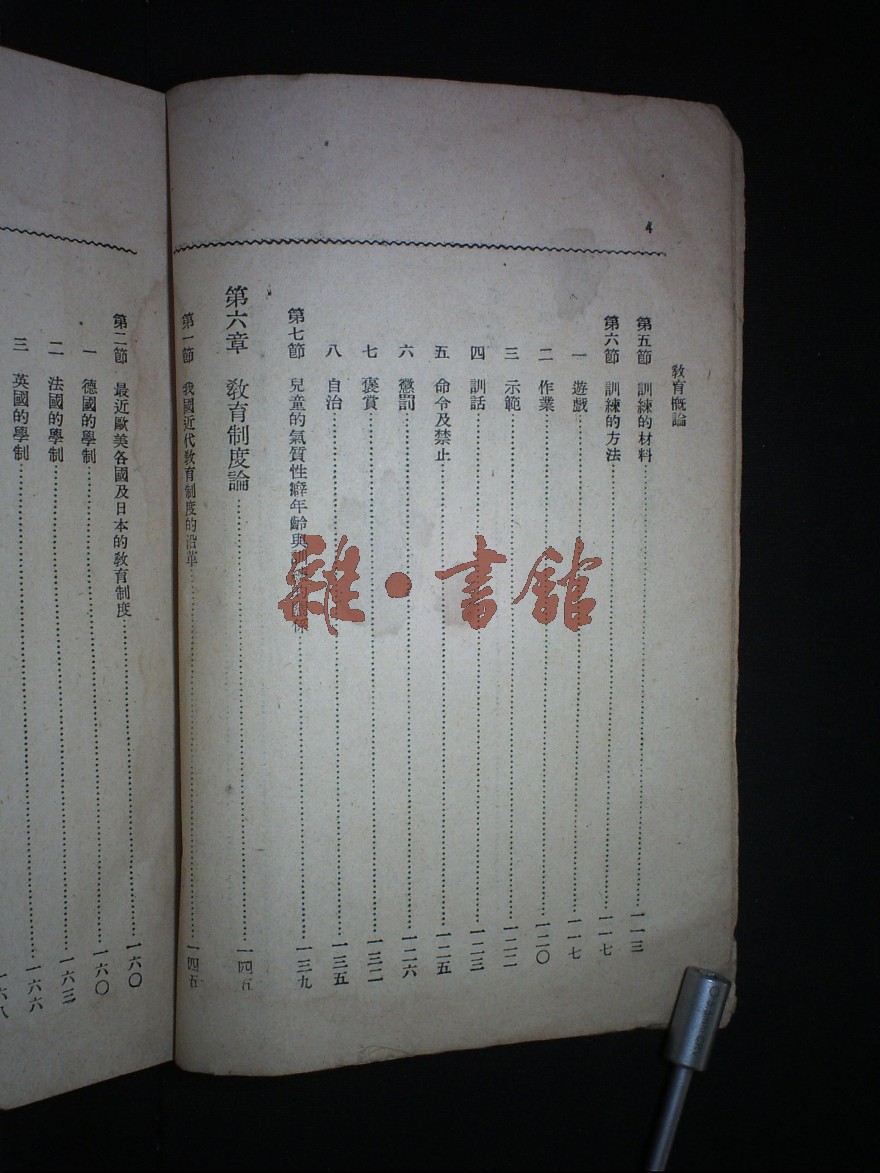 4
教育概論
第五節 訓練的材料……一一三
第六節 訓練的方法……一一七
一 遊戲……一一七
二 作業……一二〇
三 示範……一二二
四 訓話……一二三
五 命令及禁止……一二五
六 懲罰……一二六
七 褒賞……一三二
八 自治……一三五
第七節 兒童的氣質性癖年齡與訓練的關係……一三九
第六章 教育制度論……一四五
第一節 我國近代教育制度的沿革……一四五
第二節 最近歐美各國及日本的教育制度……一六〇
一 德國的學制……一六〇
二 法國的學制……一六三
三 英國的學制……一六六
一六八
雜·書館